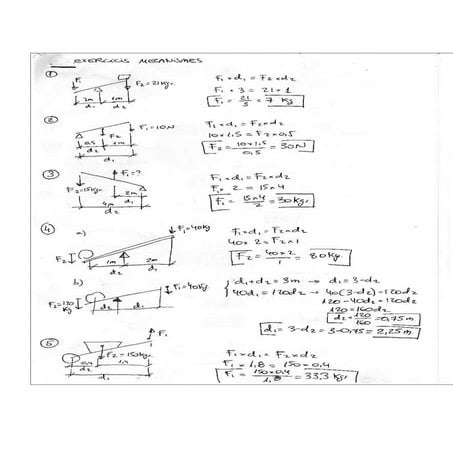 EXERCICIS MECANISMES
①
F₁
F₂=21Kgr.
3m 1m
d₁ d₂
F₁·d₁=F₂·d₂
F₁·3=21·1
F₁=21/3=7 Kg
②
F₂ F₁=10N
0,5 1m
d₂
d₁
F₁·d₁=F₂·d₂
10×1,5=F₂×0,5
F₂=10×1,5/0,5=30N
③
F₁=?
F₂=15Kgr
2m
d₁
4m
d₂
F₁·d₁=F₂·d₂
F₁·2=15×4
F₁=15×4/2=30Kgr.
④ a)
F₁=40Kg
F₂
1m 2m
d₂ d₁
F₁·d₁=F₂×d₂
40×2=F₂×1
F₂=40×2/1=80Kg.
b)
F₁=40Kg.
F₂=120Kg
d₂ d₁
d₁+d₂=3m → d₁=3-d₂
40d₁=120d₂ → 40(3-d₂)=120d₂
120-40d₂=120d₂
120=160d₂
d₂=120/160=0,75m
d₁=3-d₂=3-0,75=2,25m
⑤
F₁
F₂=150Kgr
0,4
d₂
F₁×d₁=F₂×d₂
F₁×1,8=150×0,4
F₁=150×0,4/1,8=33,3 Kgr.